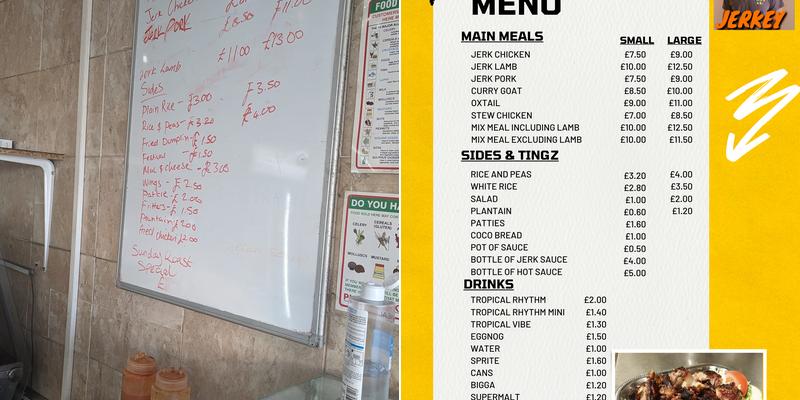 £11.00
£8.50
JERK PORK
£11.00 £13.00
Jerk Lamb
Sides
Plain Rice - £3.00 £3.50
Rice & Peas - £3.20 £4.00
Fried Dumplin - £1.50
Festival - £1.50
Mac & cheese - £3.05
Wings - £2.50
Pattie - £2.00
Fritters - £1.50
Plantain £2.00
Fried chicken £2.00
Sunday Roast
Special
£
FOOD
CUSTOMERS
DO YOU HA
CELERY
CEREALS
MOLLUSCS
MUSTARD
MENU
JERKEY
MAIN MEALS SMALL LARGE
JERK CHICKEN £7.50 £9.00
JERK LAMB £10.00 £12.50
JERK PORK £7.50 £9.00
CURRY GOAT £8.50 £10.00
OXTAIL £9.00 £11.00
STEW CHICKEN £7.00 £8.50
MIX MEAL INCLUDING LAMB £10.00 £12.50
MIX MEAL EXCLUDING LAMB £10.00 £11.50
SIDES & TINGZ
RICE AND PEAS £3.20 £4.00
WHITE RICE £2.80 £3.50
SALAD £1.00 £2.00
PLANTAIN £0.60 £1.20
PATTIES £1.60
COCO BREAD £1.00
POT OF SAUCE £0.50
BOTTLE OF JERK SAUCE £4.00
BOTTLE OF HOT SAUCE £5.00
DRINKS
TROPICAL RHYTHM £2.00
TROPICAL RHYTHM MINI £1.40
TROPICAL VIBE £1.30
EGGNOG £1.50
WATER £1.00
SPRITE £1.60
CANS £1.00
BIGGA £1.20
SUPERMALT £1.20